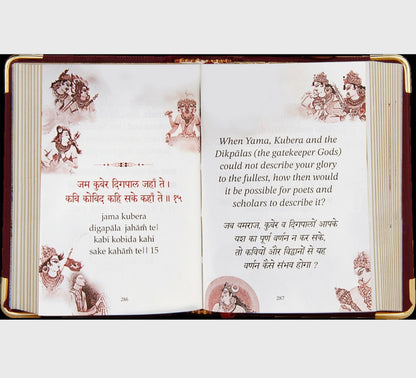 जम कुबेर दिगपाल जहाँ ते।
कबि कोविद कहि सके कहाँ ते॥ १५
jama kubera
digapāla jahāṁ te।
kabi kobida kahi
sake kahāṁ te।। 15
286
When Yama, Kubera and the
Dikpālas (the gatekeeper Gods)
could not describe your glory
to the fullest, how then would
it be possible for poets and
scholars to describe it?
जब यमराज, कुबेर व दिगपालों आपके
यश का पूर्ण वर्णन न कर सके,
तो कवियों और विद्वानों से यह
वर्णन कैसे संभव होगा ?
287